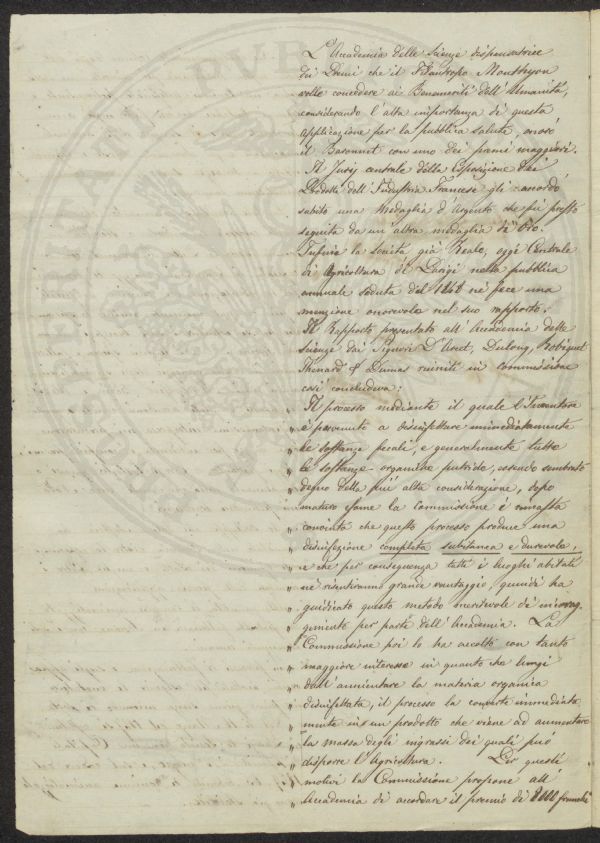 L'Accademia delle Scienze dispensatrice
dei Premi che il Filantropo Monthyon
volle concedere ai Benemeriti dell'Umanità,
considerando l'alta importanza di questa
applicazione per la pubblica salute, onorò
il Baronnet con uno dei premi maggiori.
Il Jury centrale della Esposizione dei
Prodotti dell'Industria Francese gli accordò
subito una Medaglia d'Argento che fu presto
seguita da un'altra medaglia di Oro.
Infine la Società già Reale, oggi Centrale
di Agricoltura di Parigi nella pubblica
annuale seduta del 1848 ne fece una
menzione onorevole nel suo rapporto.
Il Rapporto presentato all'Accademia delle
Scienze dai Signori D'Arcet, Dulong, Robiquet
Thenard & Dumas riuniti in commissione
così concludeva:
Il processo mediante il quale l'Inventore
„ è pervenuto a disinfettare immediatamente
„ le sostanze fecali, e generalmente tutte
„ le sostanze organiche putride, essendo sembrato
„ degno della più alta considerazione, dopo
„ maturo esame la Commissione è rimasta
„ convinta che questo processo produce una
„ disinfezione completa subitanea e durevole,
„ e che per conseguenza tutti i luoghi abitati
„ ne risentiranno grande vantaggio, quindi ha
„ giudicato questo metodo meritevole di incorag
„ gimento per parte dell'Accademia. La
„ Commissione poi lo ha accolto con tanto
„ maggiore interesse in quanto che lungi
„ dall'annientare la materia organica
„ disinfettata, il processo la converte immediata
„ mente in un prodotto che viene ad aumentare
„ la massa degli ingrassi dei quali può
„ disporre l'Agricoltura. Per questi
„ motivi la Commissione propone all'
„ Accademia di accordare il premio di 8000 franchi